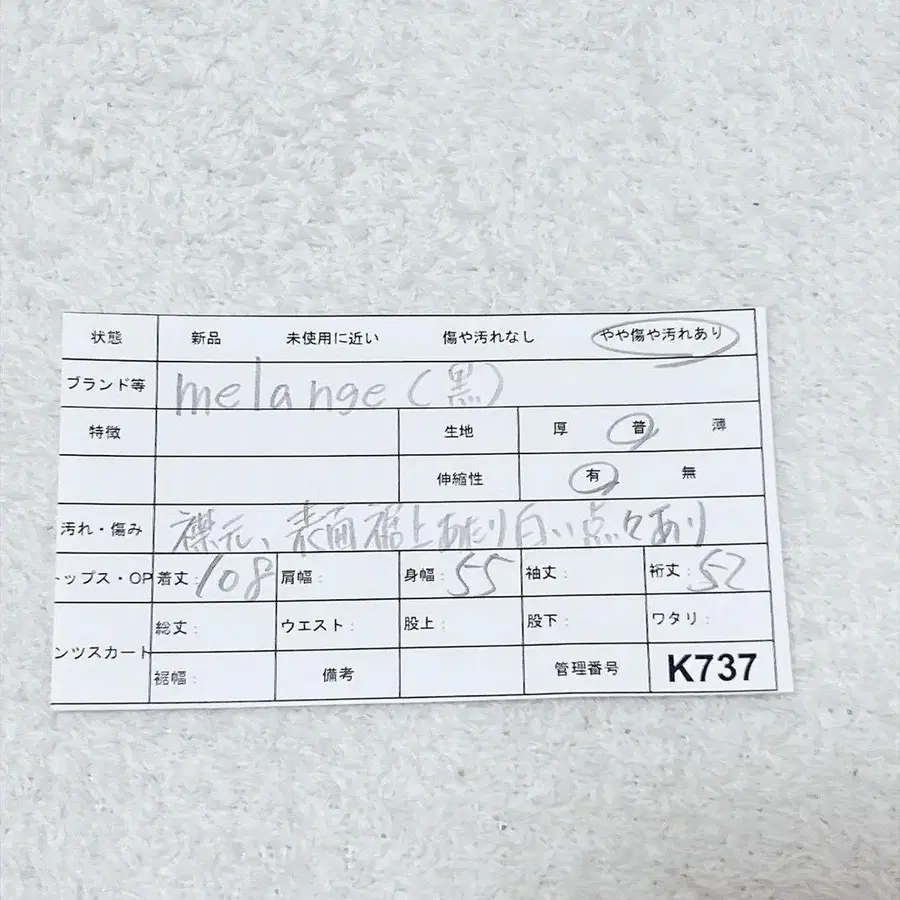 状態 新品 未使用に近い 傷や汚れなし やや傷や汚れあり
ブランド等 melange (黒)
特徴 生地 厚 普 薄
伸縮性 有 無
汚れ・傷み 襟元、表面裾上あたり白い点々あり
トップス・OP 着丈:108 肩幅: 身幅:55 袖丈: 裄丈:52
総丈: ウエスト: 股上: 股下: ワタリ:
ンツスカート
裾幅: 備考 管理番号 K737